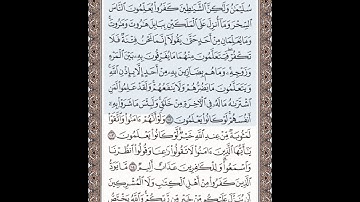 سُلَيْمَٰنُ وَلَٰكِنَّ ٱلشَّيَٰطِينَ كَفَرُوا۟ يُعَلِّمُونَ ٱلنَّاسَ
ٱلسِّحْرَ وَمَآ أُنزِلَ عَلَى ٱلْمَلَكَيْنِ بِبَابِلَ هَٰرُوتَ وَمَٰرُوتَ
وَمَا يُعَلِّمَانِ مِنْ أَحَدٍ حَتَّىٰ يَقُولَآ إِنَّمَا نَحْنُ فِتْنَةٌ فَلَا
تَكْفُرْ فَيَتَعَلَّمُونَ مِنْهُمَا مَا يُفَرِّقُونَ بِهِۦ بَيْنَ ٱلْمَرْءِ
وَزَوْجِهِۦ وَمَا هُم بِضَآرِّينَ بِهِۦ مِنْ أَحَدٍ إِلَّا بِإِذْنِ ٱللَّهِ
وَيَتَعَلَّمُونَ مَا يَضُرُّهُمْ وَلَا يَنفَعُهُمْ وَلَقَدْ عَلِمُوا۟ لَمَنِ
ٱشْتَرَىٰهُ مَا لَهُۥ فِى ٱلْءَاخِرَةِ مِنْ خَلَٰقٍ وَلَبِئْسَ مَا شَرَوْا۟ بِهِۦٓ
أَنفُسَهُمْ لَوْ كَانُوا۟ يَعْلَمُونَ ١٠٢ وَلَوْ أَنَّهُمْ ءَامَنُوا۟ وَٱتَّقَوْا۟
لَمَثُوبَةٌ مِّنْ عِندِ ٱللَّهِ خَيْرٌ لَّوْ كَانُوا۟ يَعْلَمُونَ ١٠٣
يَٰٓأَيُّهَا ٱلَّذِينَ ءَامَنُوا۟ لَا تَقُولُوا۟ رَٰعِنَا وَقُولُوا۟ ٱنظُرْنَا
وَٱسْمَعُوا۟ وَلِلْكَٰفِرِينَ عَذَابٌ أَلِيمٌ ١٠٤ مَّا يَوَدُّ
ٱلَّذِينَ كَفَرُوا۟ مِنْ أَهْلِ ٱلْكِتَٰبِ وَلَا ٱلْمُشْرِكِينَ
أَن يُنَزَّلَ عَلَيْكُم مِّنْ خَيْرٍ مِّن رَّبِّكُمْ وَٱللَّهُ يَخْتَصُّ